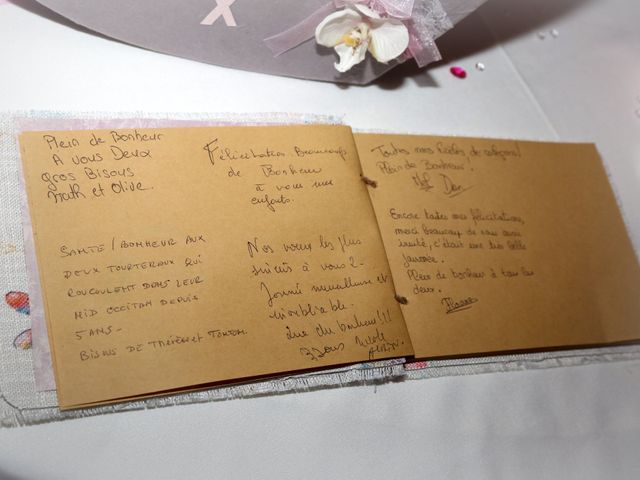 Plein de Bonheur
A vous Deux
gros Bisous
et Olive.
Félicitation. Beaucoups
de Bonheur
à vous mes
enfants.
SANTE/BONHEUR AUX
DEUX TOURTERAUX QUI
ROUCOULENT DANS LEUR
NID OCCITAN DEPUIS
5 ANS-
BISOUS DE THÉRÈSE ET TONTON.
Nos voeux les plus
sincés à vous 2-
Journée merveilleuse et
inoubliable.
Que du bonheur!!!
Toutes mes
Plein de Bonheur.
Encore toutes mes félicitations,
merci beaucoup de nous avoir
invité, c'était une très belle
journée.
Plein de bonheur à tous les
deux.
X